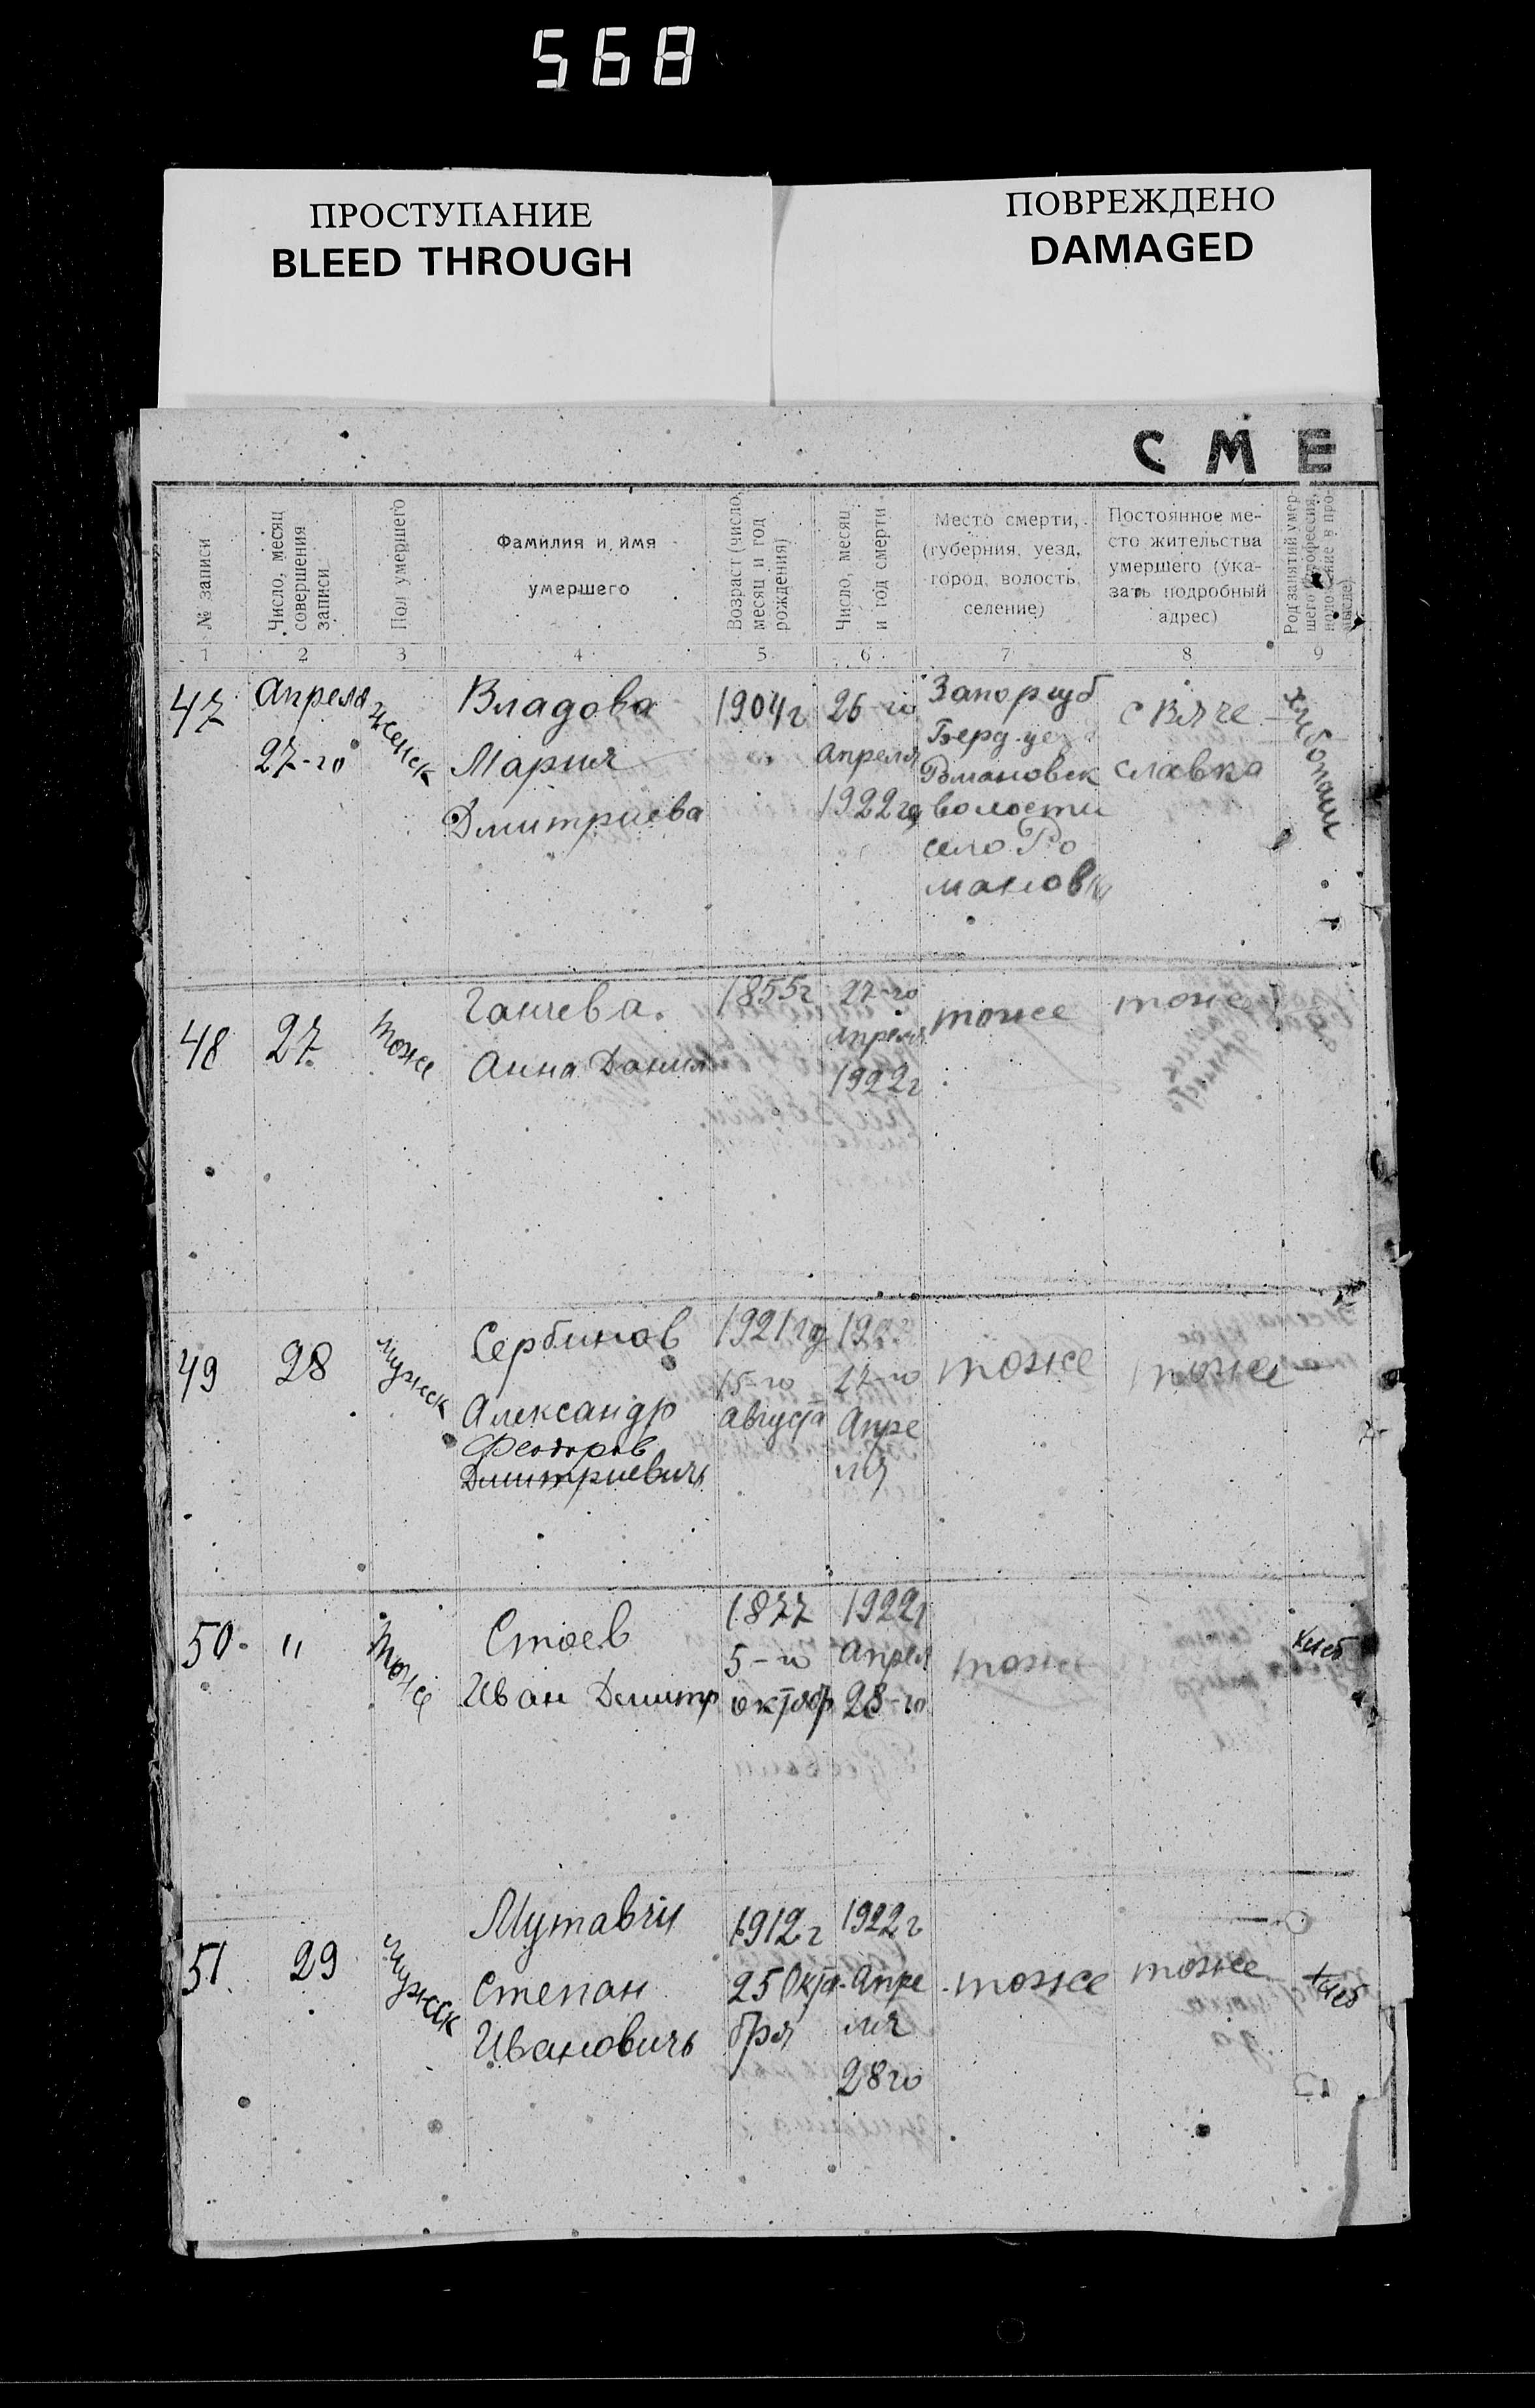 568
ПРОСТУПАНИЕ
BLEED THROUGH
ПОВРЕЖДЕНО
DAMAGED
СМЕ
№ записи
Число, месяц
совершения
записи
Пол умершего
Фамилия и имя
умершего
Возраст (число,
месяц и год
рождения)
Число, месяц
и год смерти
Место смерти,
(губерния, уезд,
город, волость,
селение)
Постоянное ме-
сто жительства
умершего (ука-
зать подробный
адрес)
Род занятий умер-
шего (профессия,
положение в про-
мысле)
1 2 3 4 5 6 7 8 9
47
Апреля
27-го
Женск
Владова
Мария
Дмитриева
1904г
26-го
Апреля
1922го
Запор губ
Берд. уе
Романовск
волости
село Ро
мановк
с Вяче
славка
48
27
тоже
Ганчева.
Анна Данил
1855г
27-го
апреля
1922г
тоже
тоже
49
28
мужск
Сербинов
Александр
Феодоров
Дмитриевичь
1921го
15-го
августа
27-го
Апре
ля
тоже
тоже
50.
"
тоже
Стоев
Иван Димитр
1877
5-го
октябр
1922г
Апрел
28-го
тоже
хлеб
51.
29
Мужск
Мутавчи
Степан
Ивановичь
1912г
25 Октя
бря
1922г
Апре
ля
28го
тоже
тоже
хлеб